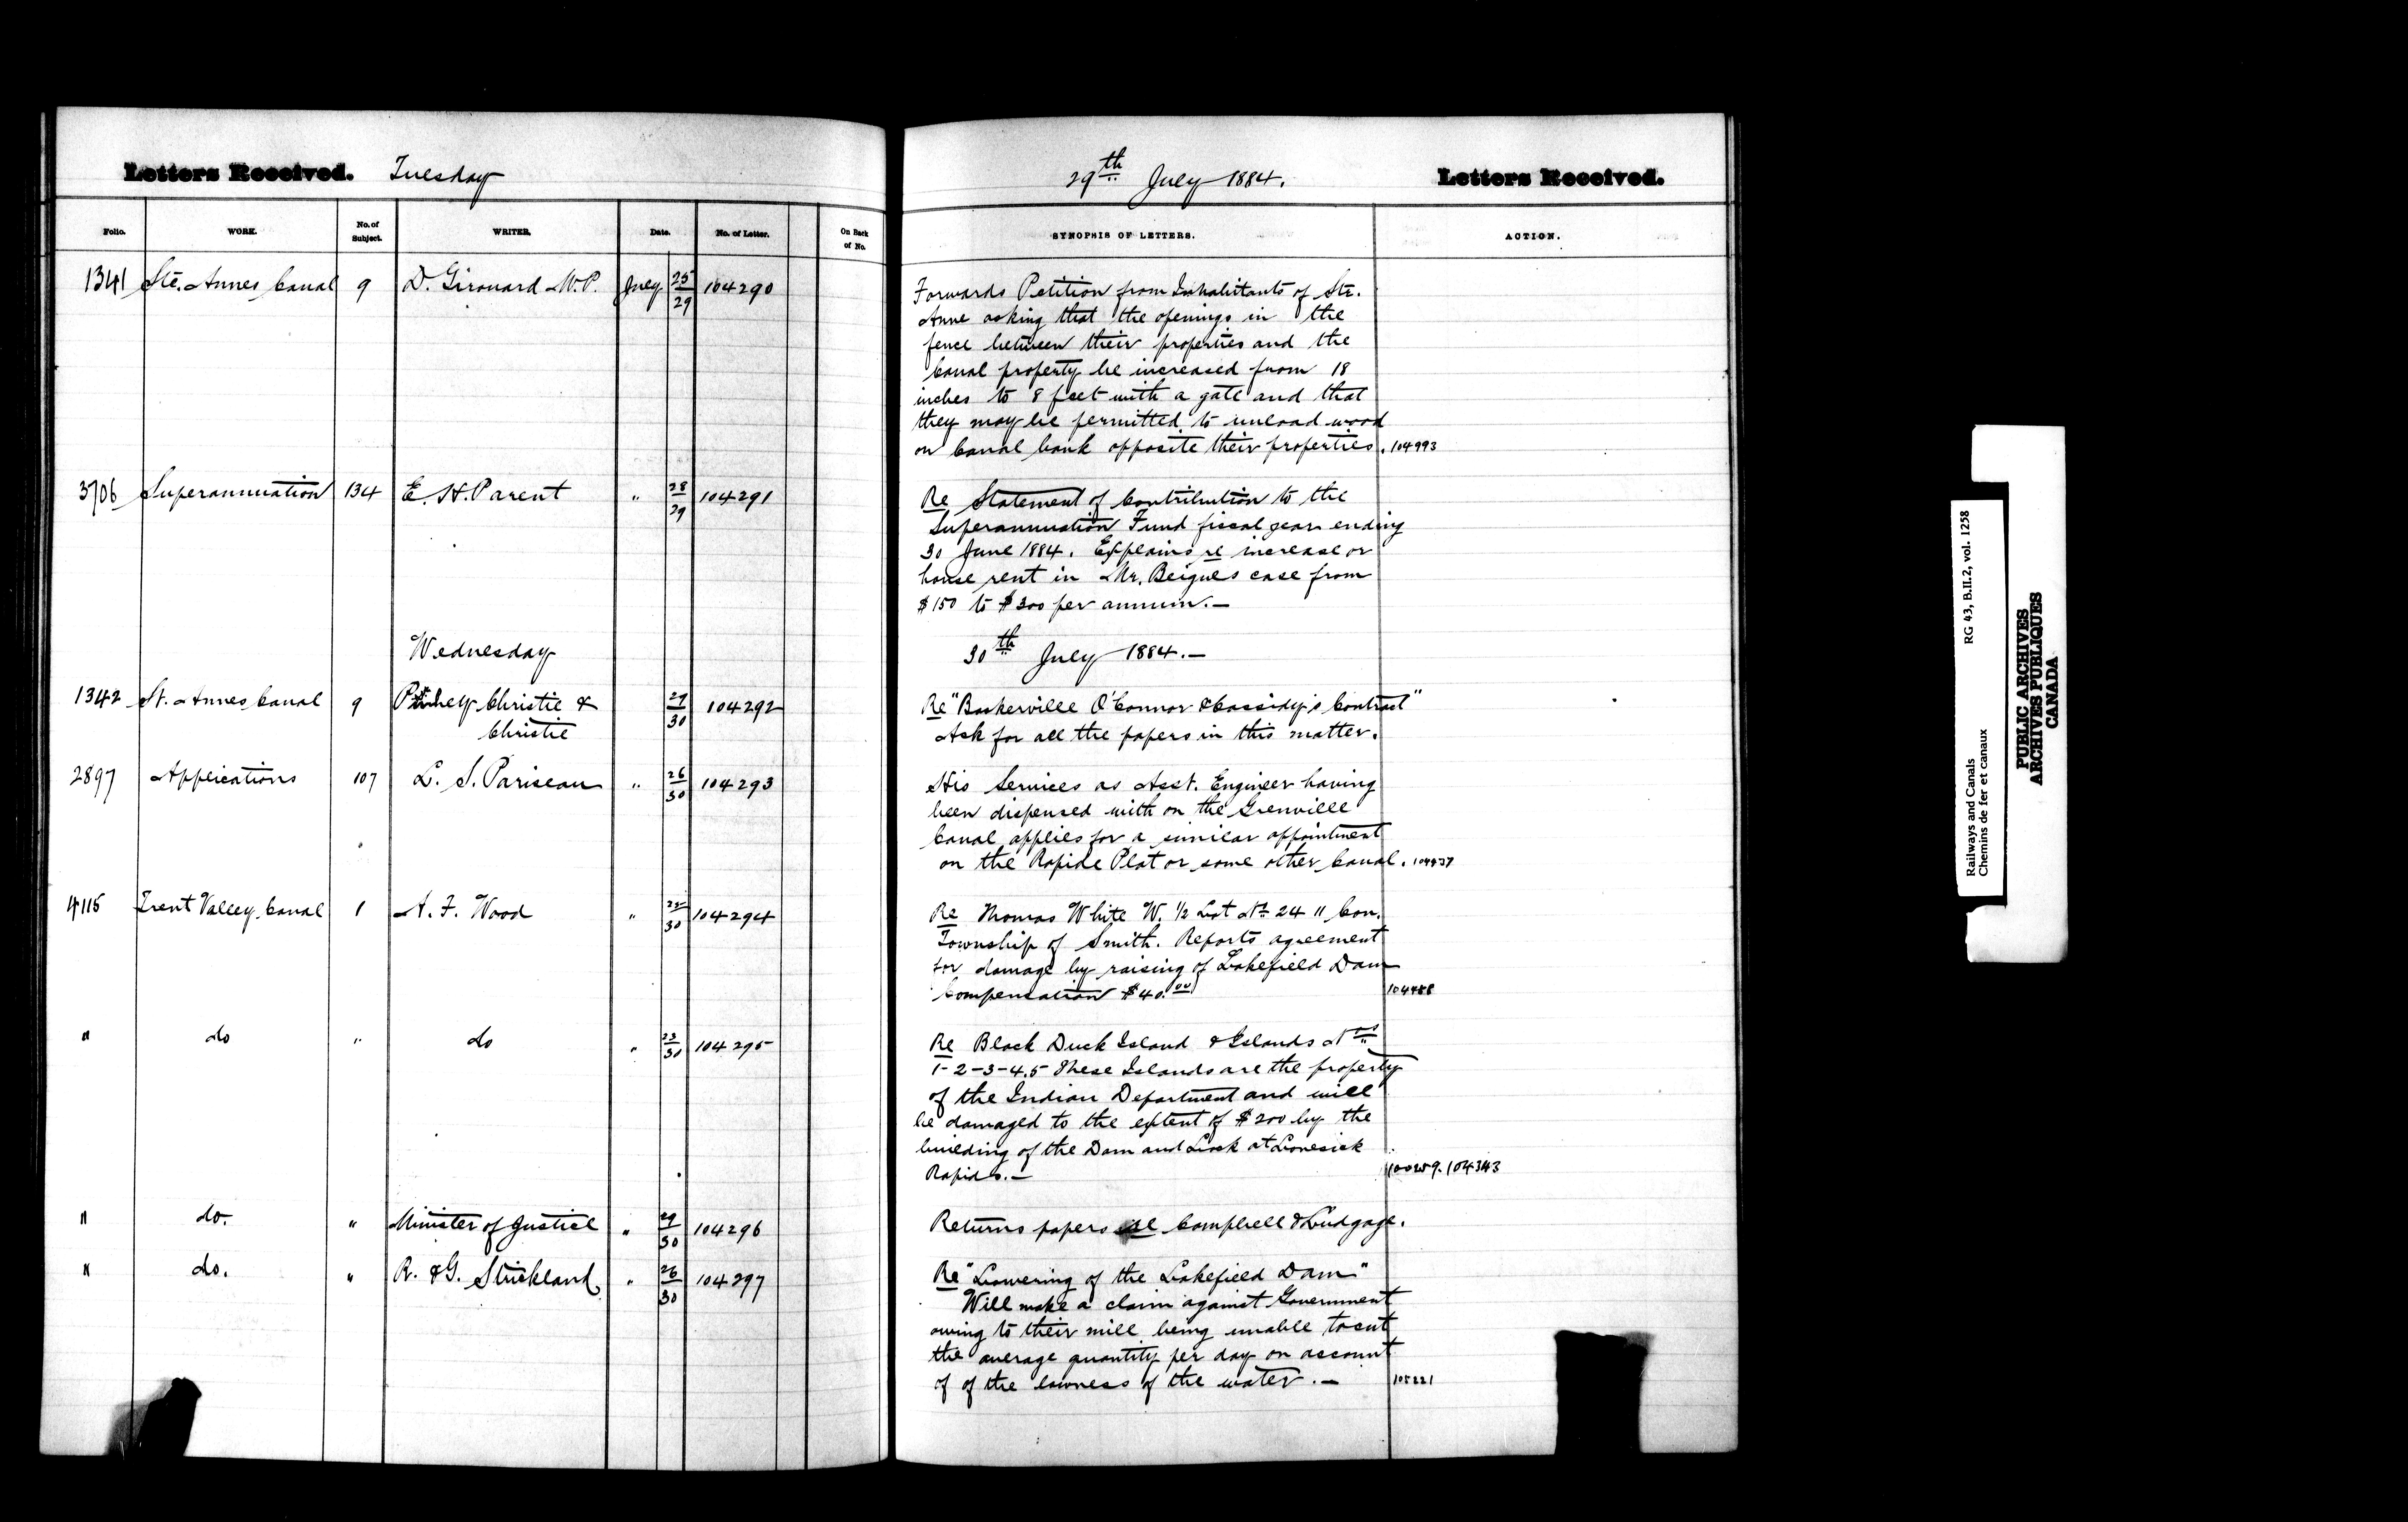 Letters Received. Tuesday
29th July 1884. Letters Received.
Folio. WORK. No. of Subject. WRITER. Date. No. of Letter. On Back of No. SYNOPSIS OF LETTERS. ACTION.
1341 Ste. Annes Canal 9 D. Girouard M.P. July 25/29 104290
Forwards Petition from Inhabitants of Ste.
Anne asking that the openings in the
fence between their properties and the
Canal property be increased from 18
inches to 8 feet with a gate and that
they may be permitted to unload wood
on Canal bank opposite their properties. 104993
3706 Superannuation 134 E. H. Parent " 28/29 104291
Re Statement of Contribution to the
Superannuation Fund fiscal year ending
30 June 1884. Explains re increase or
house rent in Mr. Beiques case from
$150 to $300 per annum.—
Wednesday 30th July 1884.—
1342 St. Annes Canal 9 Christie & 29/30 104292
Christie
Re "Baskerville O'Connor & Cassidy's Contract"
Ask for all the papers in this matter.
2897 Applications 107 L. S. Pariseau " 26/30 104293
His Services as Asst. Engineer having
been dispensed with on the Grenville
Canal applies for a similar appointment
on the Rapide Plat or some other Canal.
4115 Trent Valley Canal 1 A. F. Wood " 104294
Re Thomas White W. 1/2 Lot No 24 11 Con.
Township of Smith. Reports agreement
for damage by raising of Lakefield Dam
Compensation $40.00 104488
" do " do " 23/30 104295
Re Black Duck Island & Islands Nos
1-2-3-4.5 These Islands are the property
of the Indian Department and will
be damaged to the extent of $200 by the
building of the Dam and Lock at Lovesick
Rapids.— 104343
" do. " Minister of Justice " 29/30 104296
Returns papers re Campbell & Ludgage.
" do. " R. & G. Strickland " 26/30 104297
Re "Lowering of the Lakefield Dam"
Will make a claim against Government
owing to their mill being unable to cut
the average quantity per day on account
of of the lowness of the water.— 105221
Railways and Canals RG 43, B.II.2, vol. 1258
Chemins de fer et canaux
PUBLIC ARCHIVES
ARCHIVES PUBLIQUES
CANADA